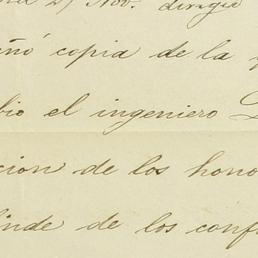 27 Nov. dirigió
ñó copia de la
bio el ingeniero
cion de los hono
inde de los conf